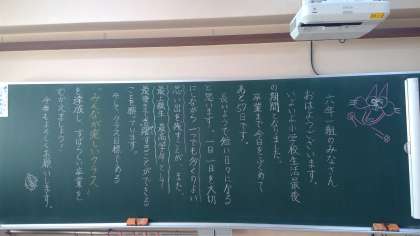 六年一組のみなさん
おはようございます。
いよいよ小学校生活最後
の期間になりました。
卒業まで今日をふくめて
あと50日です。
長いようで短い日々になる
と思います。一日一日を大切
にしながら一つでも多くのよい
思い出を残すことが、また、
最上級生、最高学年として
最後まで
ことを願っています。
そして、クラス目標である
“みんなが楽しいクラス”
を達成し、すばらしい卒業を
むかえましょう！
今年もよろしくお願いします。